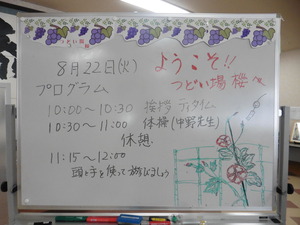 つどい場 桜
8月22日(火)
ようこそ!!
つどい場 桜へ
プログラム
10:00～10:30 挨拶 ティタイム
10:30～11:00 体操(中野先生)
休憩
11:15～12:00
頭と手を使って遊びましょう